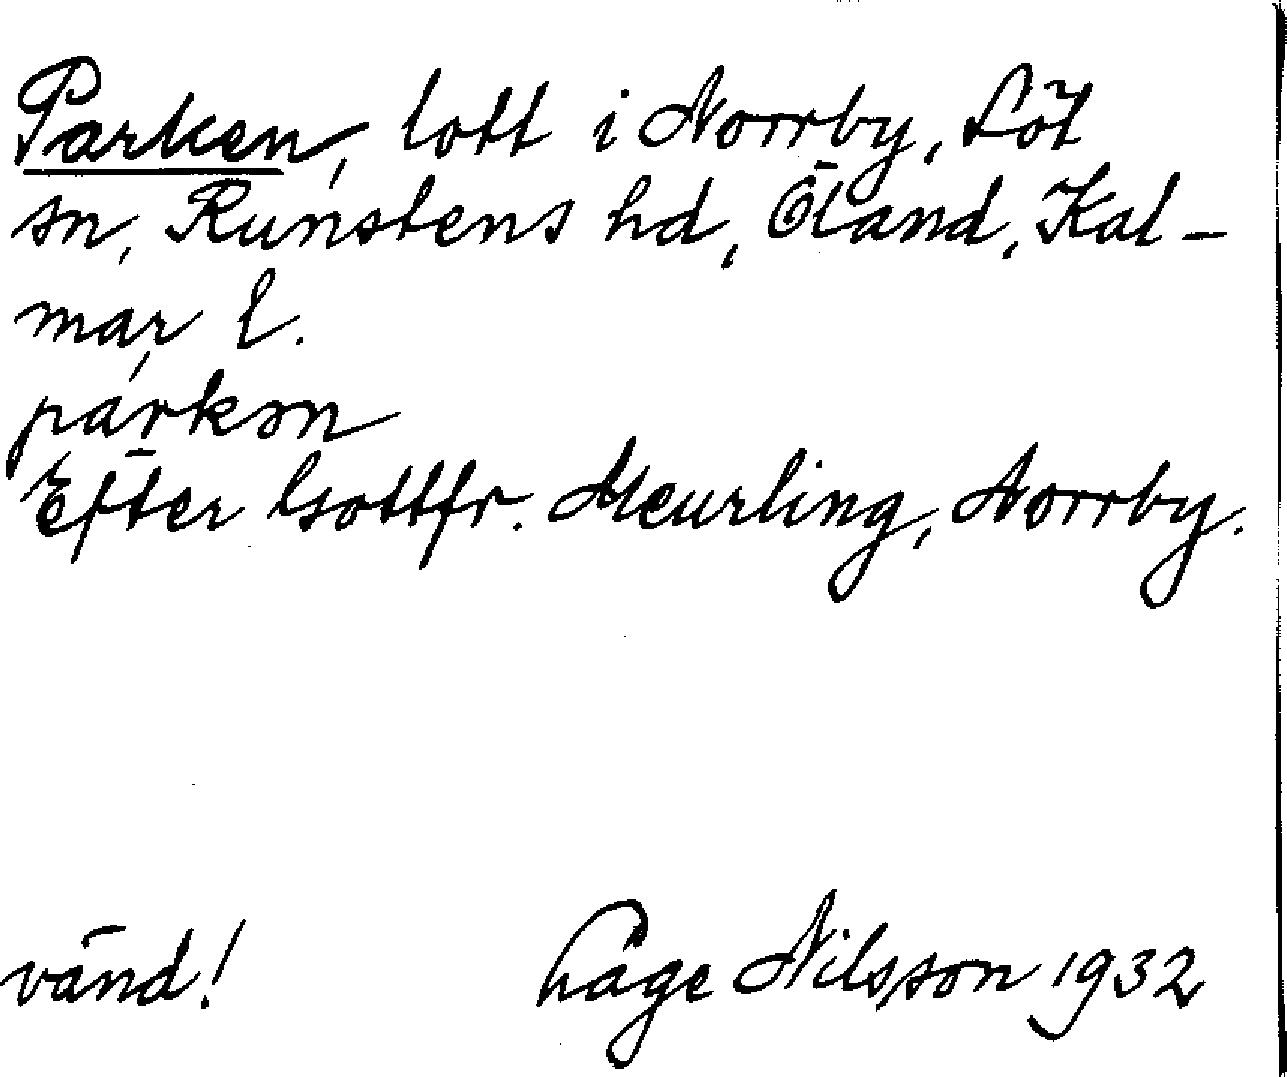 Parken, lott i Norrby, Löt
sn, Runstens hd, Öland, Kal-
mar l.
párkən
Efter Gottfr. Meurling, Norrby.
vänd! Låge Nilsson 1932